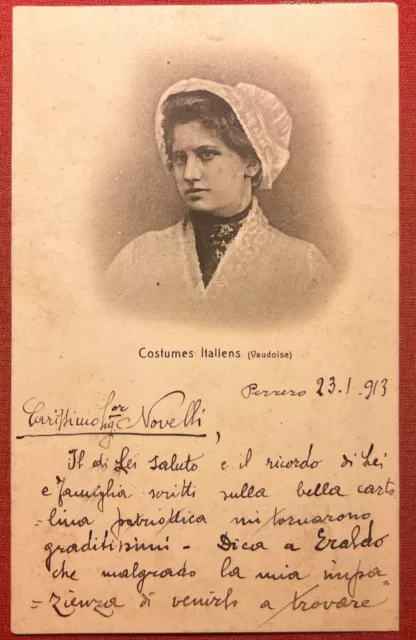 Costumes Italiens (Vaudoise)
Perrero 23.1.913
Carissimo Sigor Novelli,
Il di Lei saluto e il ricordo di Lei
e famiglia scritti sulla bella carto
=lina patriottica mi tornarono
graditissimi - Dica a Eraldo
che malgrado la mia impa=
=zienza di venirlo a trovare